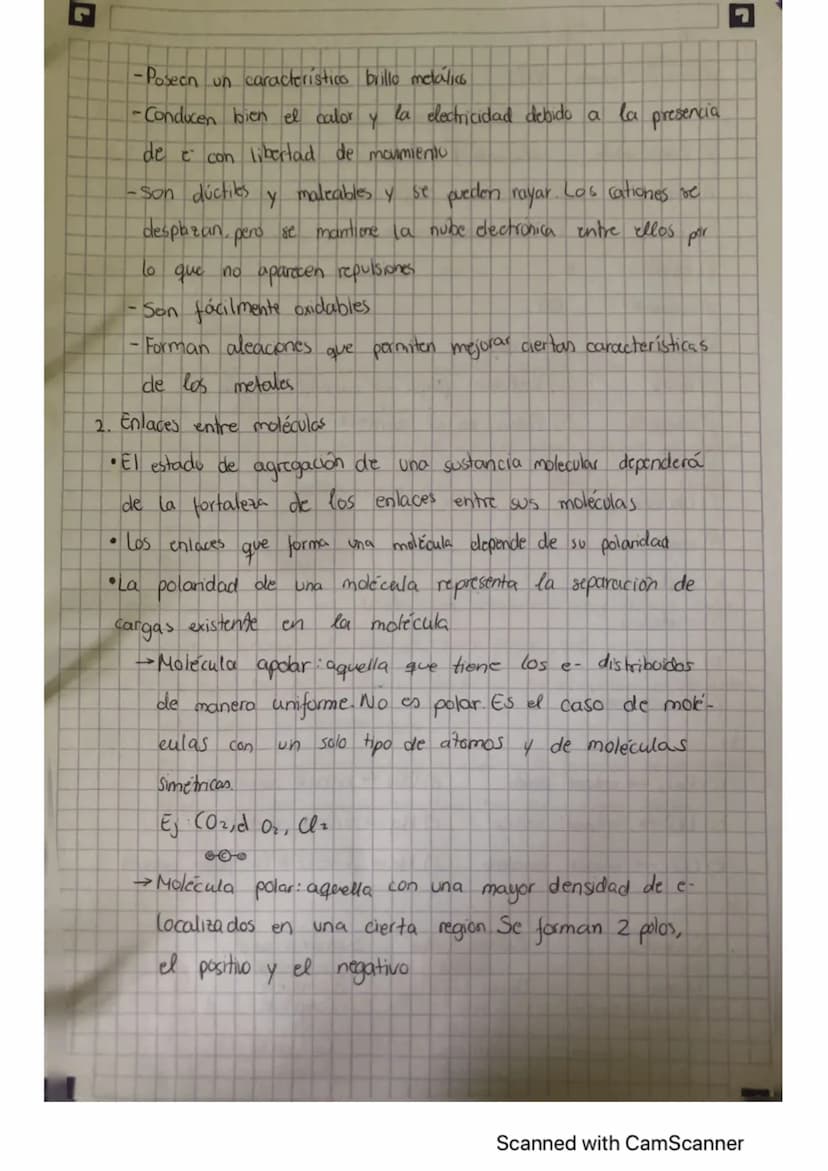 -Poseen un característico brillo metálico
-Conducen bien el calor y la electricidad debido a la presencia
de e- con libertad de movimiento
-son dúctiles y maleables y se pueden rayar. Los cationes se
desplazan, pero se mantiene la nube electronica entre ellos por
lo que no aparecen repulsiones
-Son fácilmente oxidables
-Forman aleaciones que permiten mejorar ciertas características
de los metales
2. Enlaces entre moléculas
•El estado de agregación de una sustancia molecular dependerá
de la fortaleza de los enlaces entre sus moléculas
•Los enlaces que forma una molécula depende de su polaridad
•La polaridad de una molécula representa la separación de
cargas existente en la molécula
→Molécula apolar: aquella que tiene los e- distribuidos
de manera uniforme. No es polar. Es el caso de molé-
culas con un solo tipo de átomos y de moléculas
simétricas.
Ej: CO2,d O2, Cl2
→Molécula polar: aquella con una mayor densidad de e-
localizados en una cierta region Se forman 2 polos,
el positivo y el negativo
Scanned with CamScanner